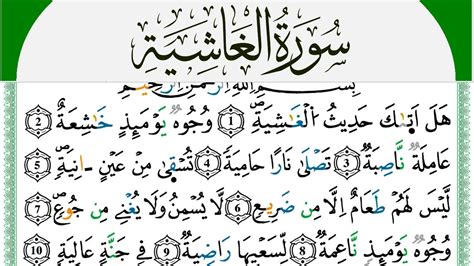 سُورَةُ الْغَاشِيَةِ
بِسْمِ اللَّهِ الرَّحْمَٰنِ الرَّحِيمِ
هَلْ اَتٰىكَ حَدِيْثُ الْغَاشِيَةِۗ ۝1 وُجُوْهٌ يَّوْمَىِٕذٍ خَاشِعَةٌ ۝2
عَامِلَةٌ نَّاصِبَةٌ ۝3 تَصْلٰى نَارًا حَامِيَةً ۝4 تُسْقٰى مِنْ عَيْنٍ اٰنِيَةٍۗ ۝5
لَيْسَ لَهُمْ طَعَامٌ اِلَّا مِنْ ضَرِيْعٍ ۝6 لَّا يُسْمِنُ وَلَا يُغْنِيْ مِنْ جُوْعٍۗ ۝7
وُجُوْهٌ يَّوْمَىِٕذٍ نَّاعِمَةٌ ۝8 لِّسَعْيِهَا رَاضِيَةٌ ۝9 فِيْ جَنَّةٍ عَالِيَةٍ ۝10